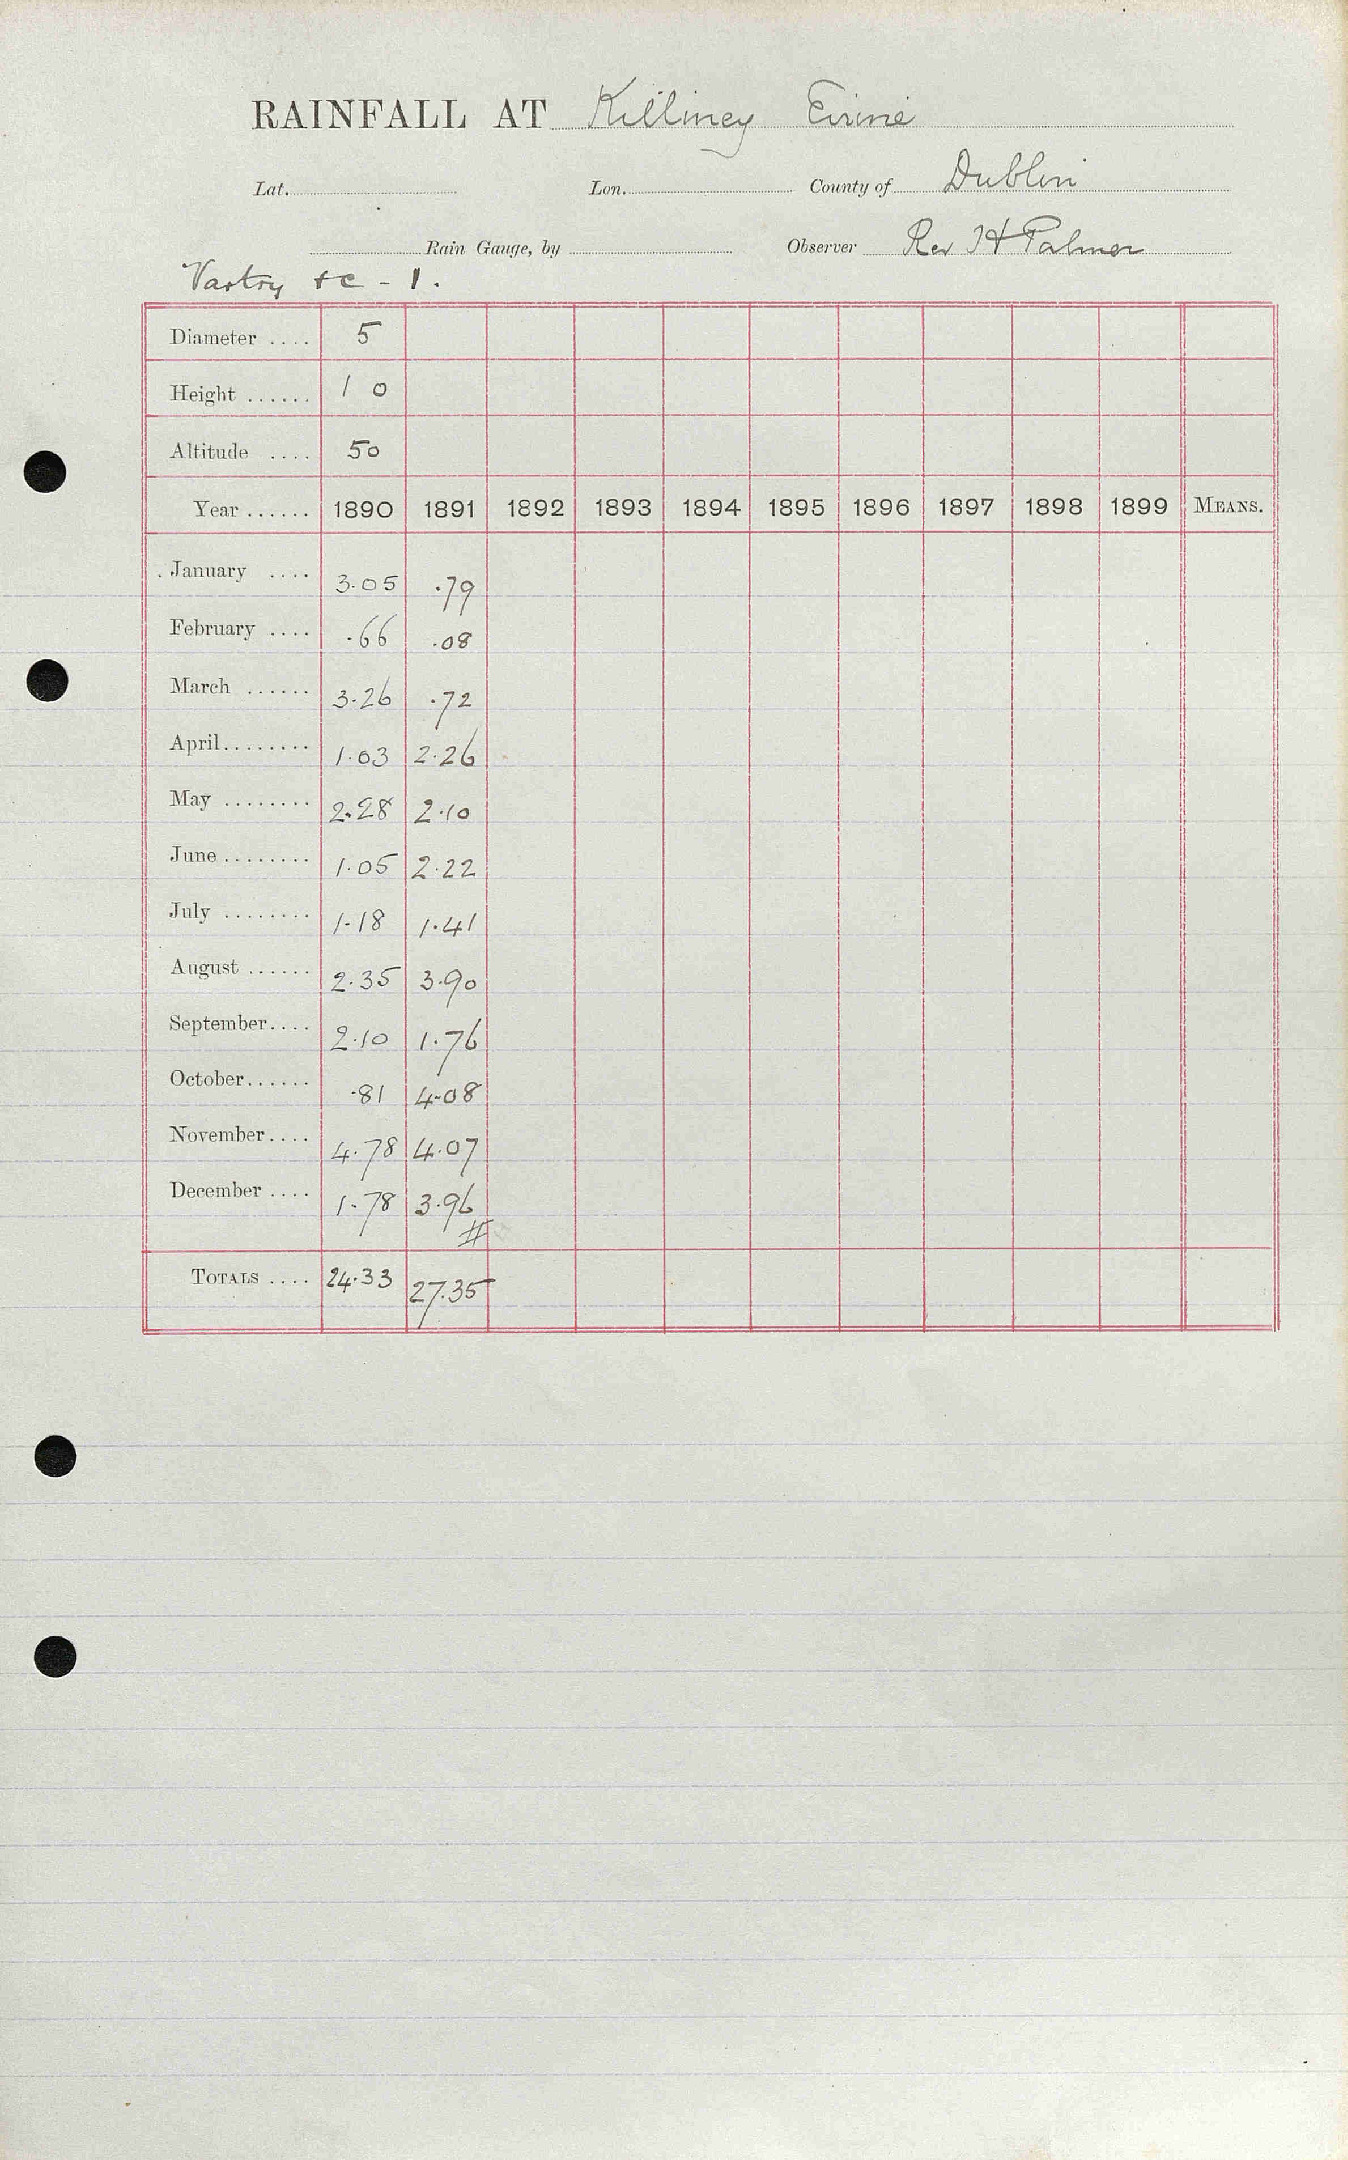 RAINFALL AT Killiney Eirene
Lat. Lon. County of Dublin
Rain Gauge, by Observer Rev H Palmer
Vartry &c - 1.
Diameter .... 5
Height ...... 1 0
Altitude .... 50
Year ...... 1890 1891 1892 1893 1894 1895 1896 1897 1898 1899 MEANS.
January .... 3.05 .79
February .... .66 .08
March ...... 3.26 .72
April........ 1.03 2.26
May ........ 2.28 2.10
June ........ 1.05 2.22
July ........ 1.18 1.41
August ...... 2.35 3.90
September.... 2.10 1.76
October...... .81 4.08
November.... 4.78 4.07
December .... 1.78 3.96
#
TOTALS .... 24.33 27.35